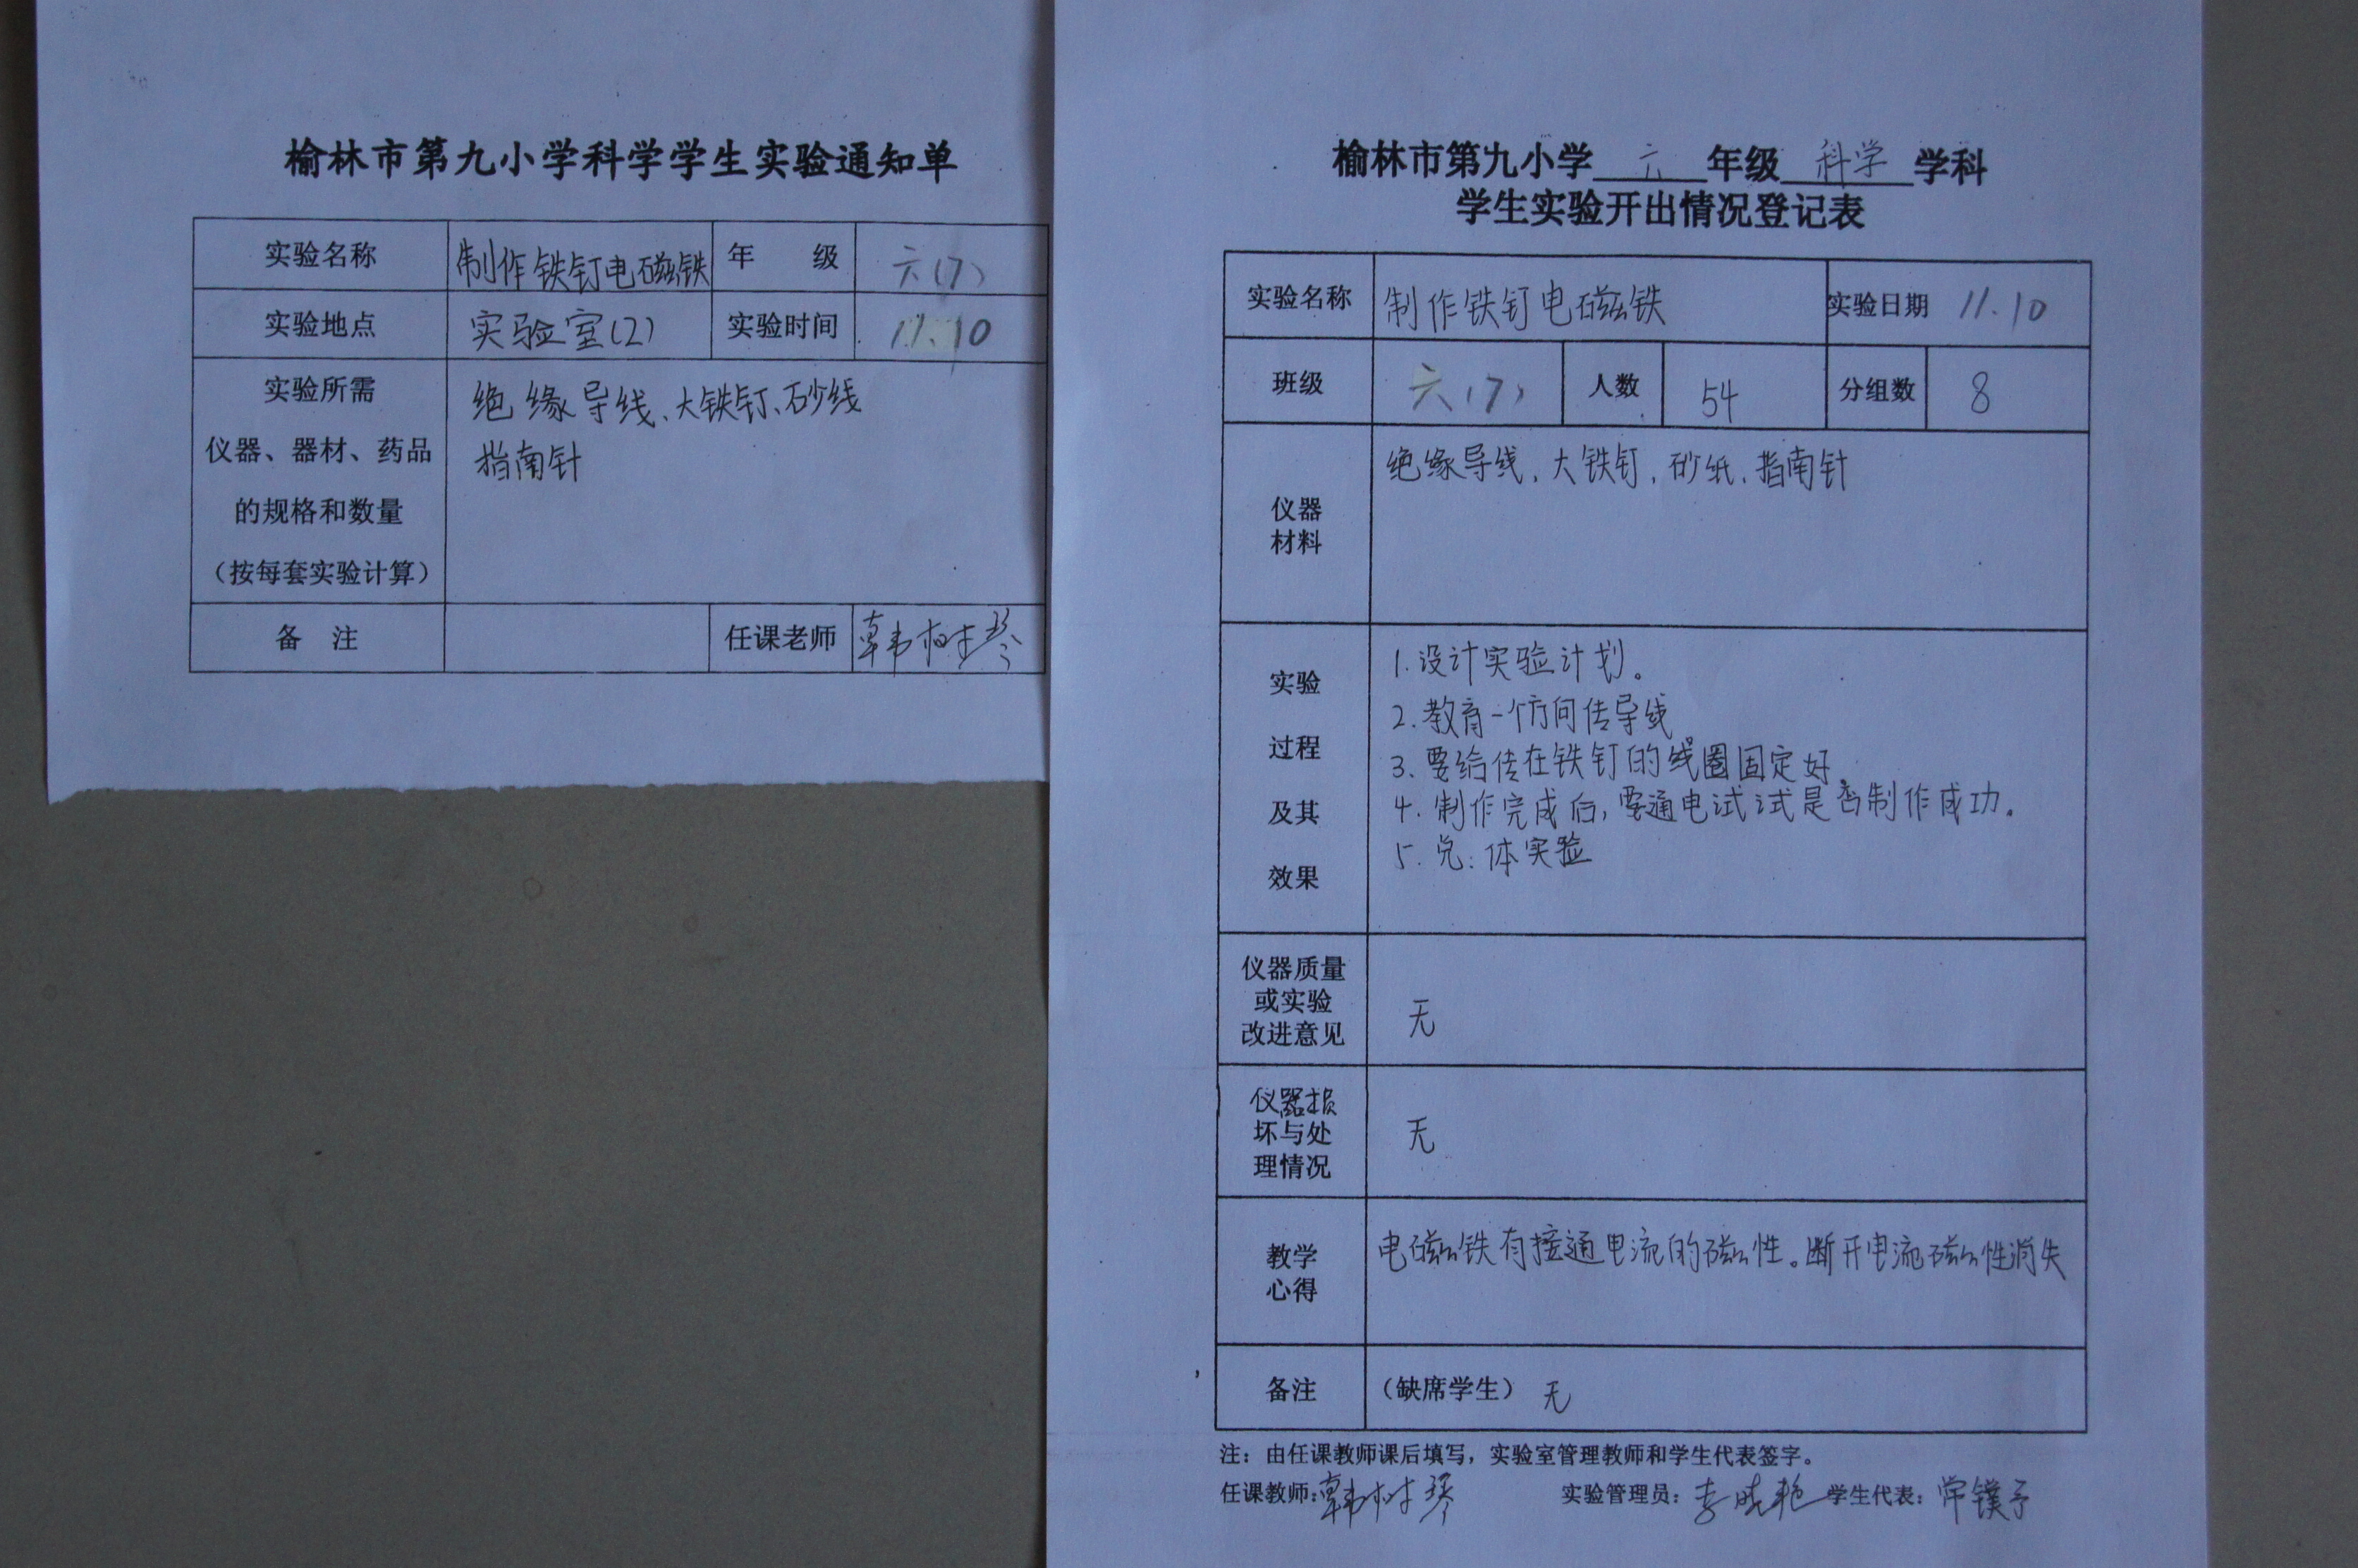 榆林市第九小学科学学生实验通知单
实验名称 制作铁钉电磁铁 年 级 六(7)
实验地点 实验室(2) 实验时间 11.10
实验所需
仪器、器材、药品
的规格和数量
(按每套实验计算)
绝缘导线、大铁钉、砂线
指南针
备 注 任课老师 韩树琴
榆林市第九小学 六 年级 科学 学科
学生实验开出情况登记表
实验名称 制作铁钉电磁铁 实验日期 11.10
班级 六(7) 人数 54 分组数 8
仪器
材料
绝缘导线、大铁钉、砂纸、指南针
实验
过程
及其
效果
1.设计实验计划。
2.教育一个方向传导线
3.要给传在铁钉的线圈固定好。
4.制作完成后,要通电试试是否制作成功。
5. 体实验
仪器质量
或实验
改进意见
无
仪器损
坏与处
理情况
无
教学
心得
电磁铁有接通电流的磁性。断开电流磁性消失
备注 (缺席学生) 无
注:由任课教师课后填写,实验室管理教师和学生代表签字。
任课教师:韩树琴 实验管理员:李晓艳 学生代表:常镤予